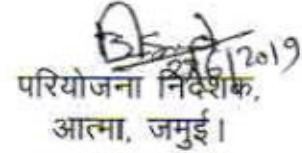 6/2019
परियोजना निदेशक,
आत्मा, जमुई।